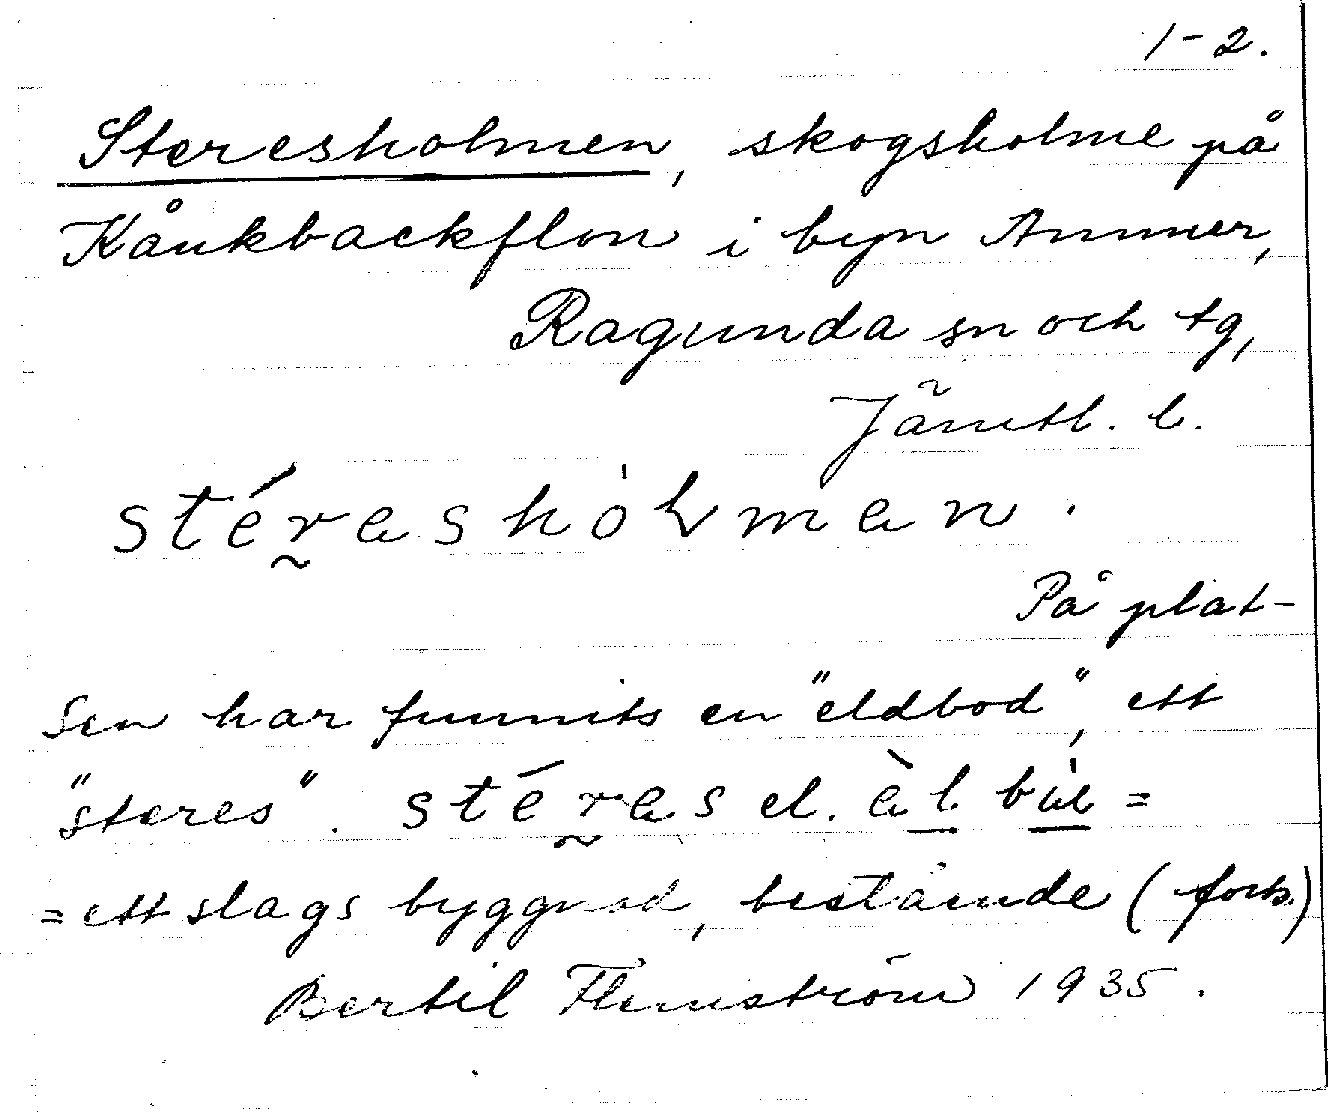 1-2.
Steresholmen, skogsholme på
Kånkbackflon i byn Ammer,
Ragunda sn och tg,
Jämtl. l.
stérashòlman.
På plat-
sen har funnits en "eldbod", ett
"steres". stéras el. èlbùe =
= ett slags byggnad, bestående (forts.)
Bertil Flemström 1935.